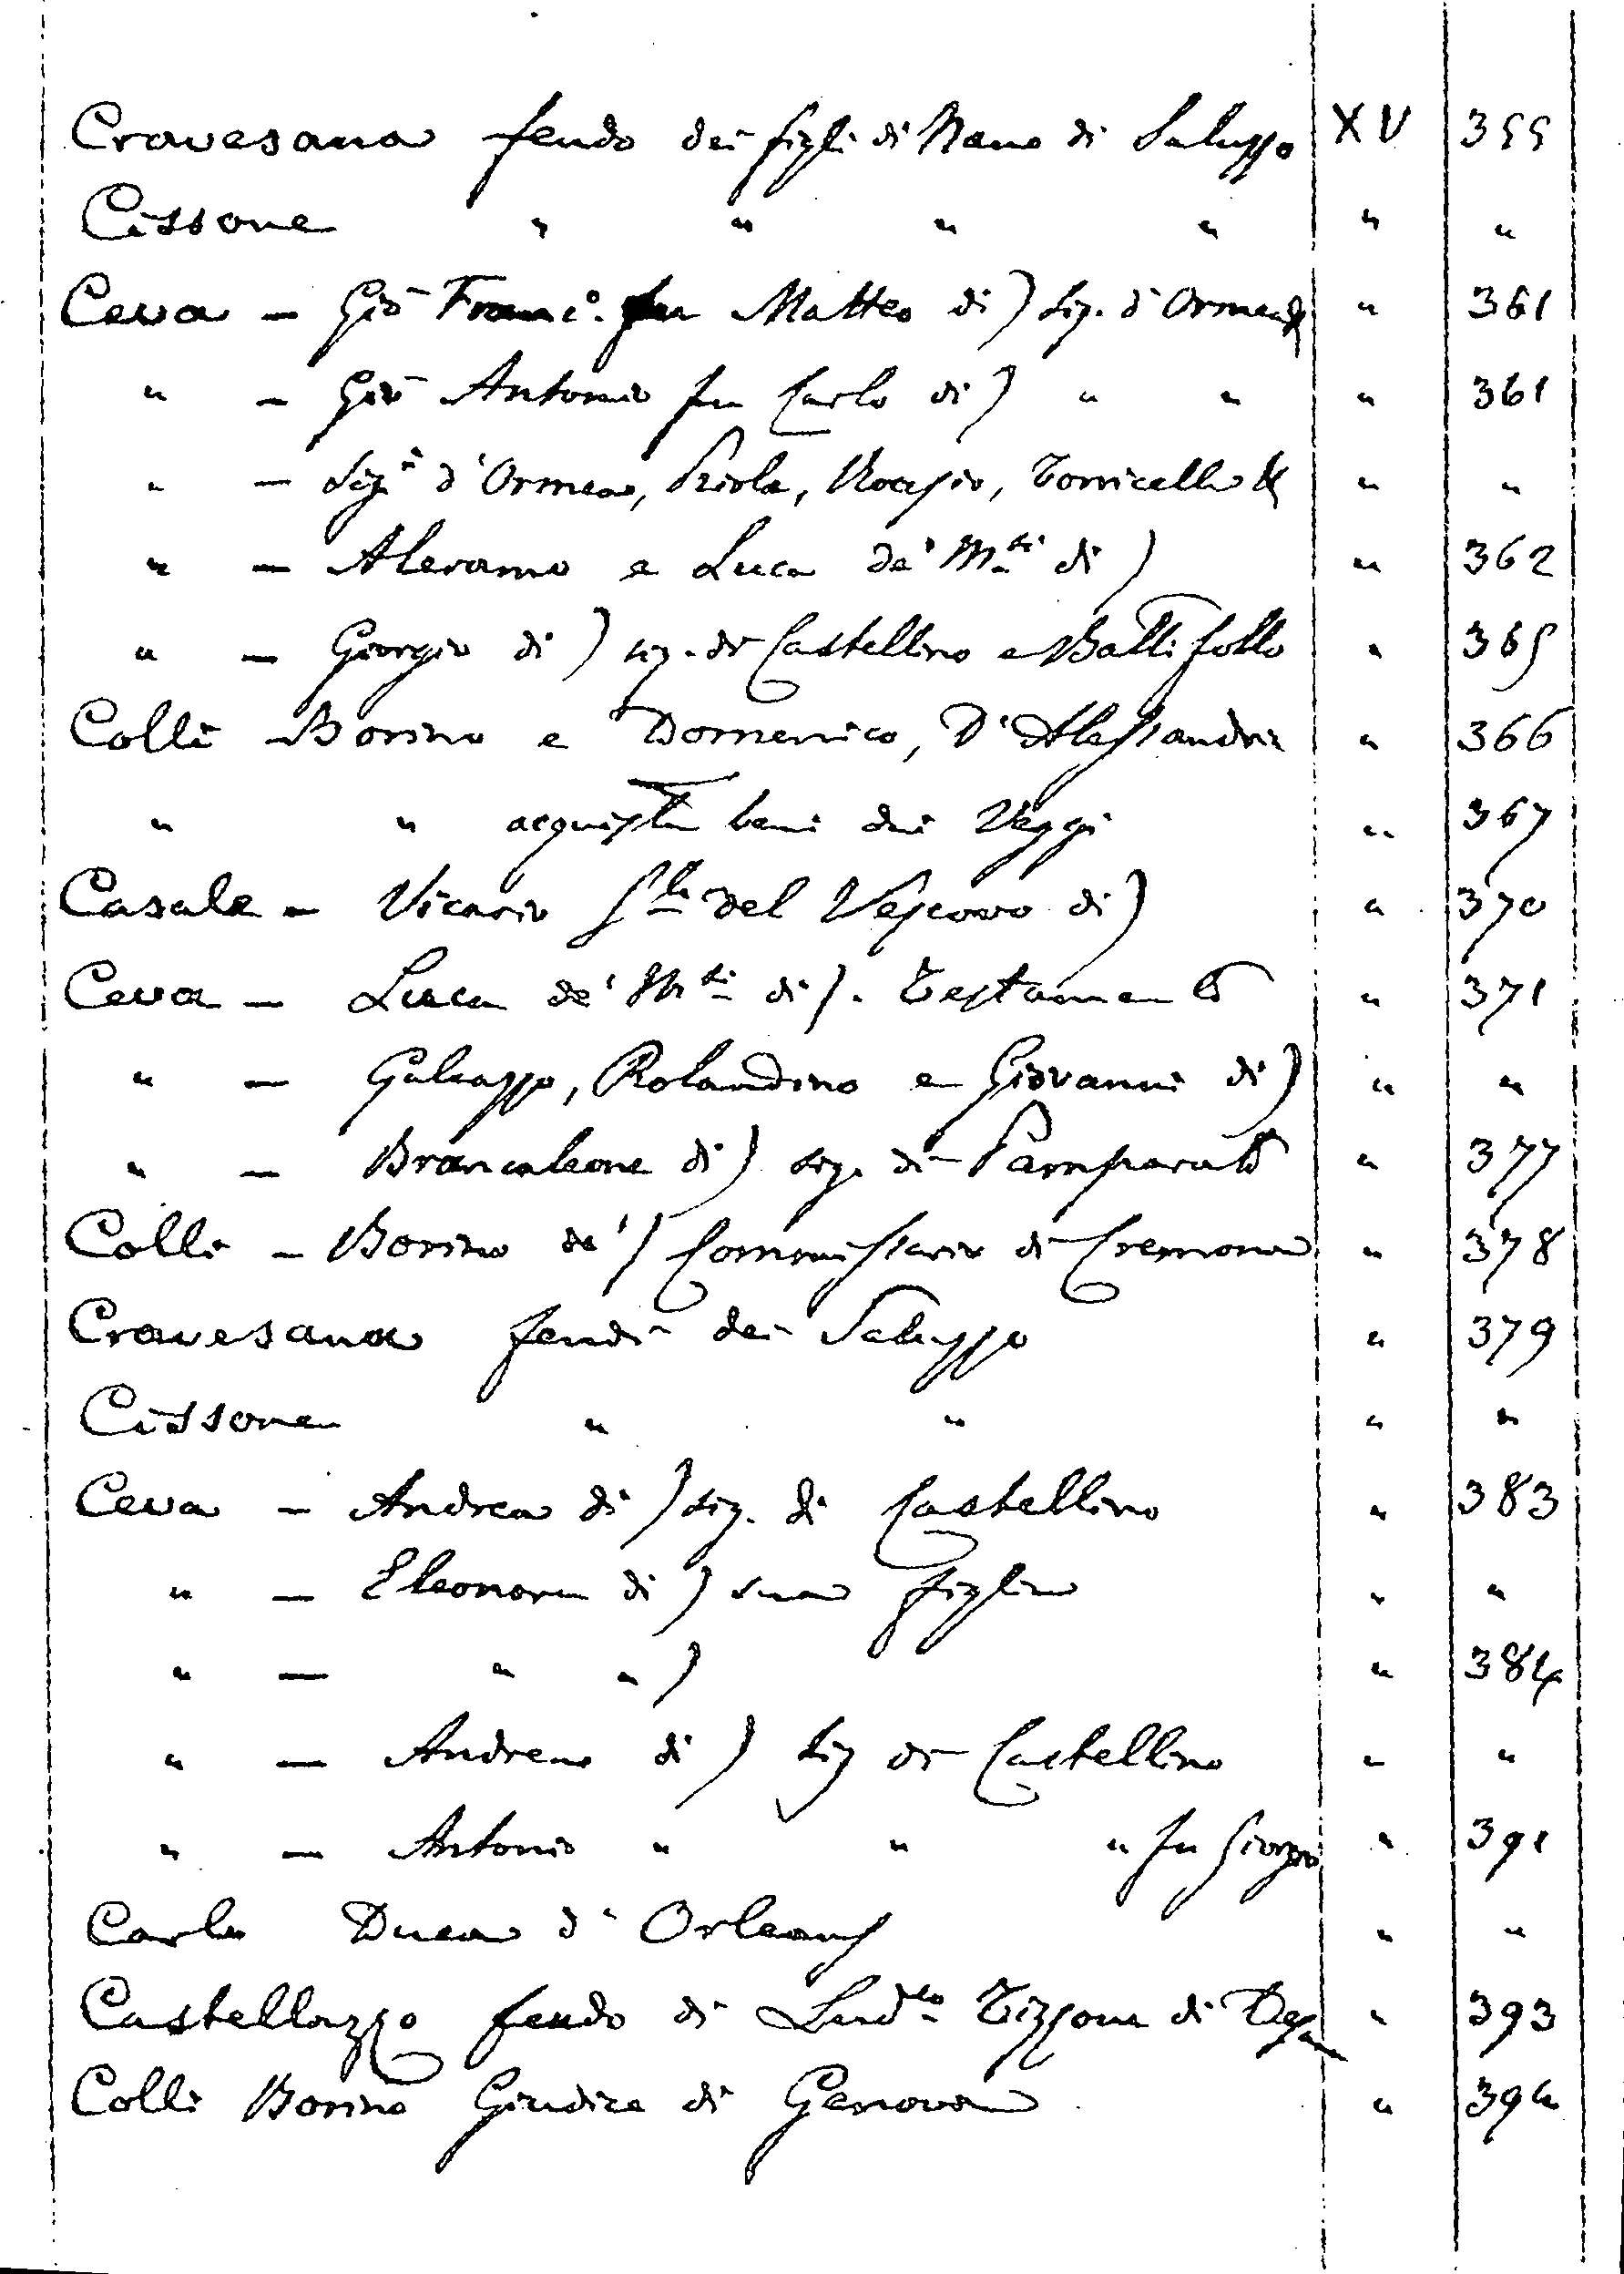 Cravesana feudo dei figli di Nano di Saluzzo XV 355
Cissone " " " " " "
Ceva – Gio Franc.º fu Matteo di) sig. d'Ormea & " 361
" – Gio Antonio fu Carlo di) " " " 361
" – Sigri d'Ormea, Priola, Torricella & " "
" – Aleramo e Luca de' Mti di) " 362
" – Giorgio di) sig. di Castellino e Battifollo " 365
Colli Borino e Domenico, D'Alessandria " 366
" " acquista beni dai Veggi " 367
Casale – Vicario Gle del Vescovo di) " 370
Ceva – Luca de' Mti di). Testamento " 371
" – Galeazzo, Rolandino e Giovanni di) " "
" – Brancaleone di) sig. di Pamparato " 377
Colli – Borino de') Commissario di Cremona " 378
Cravesana feudi dei Saluzzo " 379
Cissone " " " "
Ceva – Andrea di) sig. di Castellino " 383
" – Eleonora di) sua figlia " "
" – " ") " 384
" – Andrea di) sig di Castellino " "
" – Antonio " " " fu Giorgio " 391
Carlo Duca d'Orleans " "
Castellazzo feudo di Ludco Tizzone di Desana " 393
Colli Borino Giudice di Genova " 394